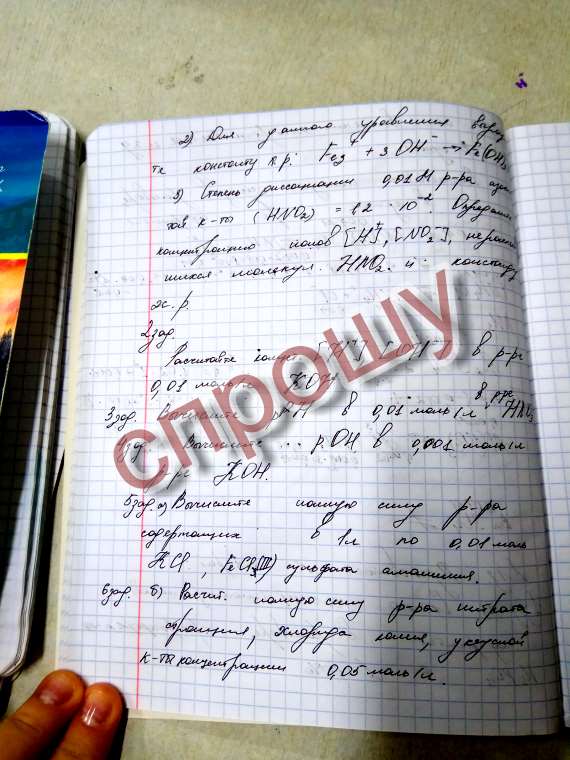 2) Для данного уравнения выра
те константу к.р. Fe3+ + 3 OH- → Fe(OH)3
3) Степень диссоциации 0,01 М р-ра азот
той к-ты (HNO2) = 8,2 · 10-2. Определит
концентрацию ионов [H+], [NO2-], нераспа
шихся молекул HNO2 и константу
2 зад.
Расчитайте [H+] [OH-] в р-ре
0,01 моль/л KOH
3 зад. Вычислите pH в 0,01 моль/л в р-ре HNO3
зад. Вычислите ... pOH в 0,001 моль/л
р-ре KOH.
5 зад. а) Вычислите ионную силу р-ра
содержащих в 1 л по 0,01 моль
HCl, FeCl3(III) сульфата алюминия.
6 зад. б) Расчит. ионную силу р-ра нитрата
хлорида калия, уксусной
к-ты концентрации 0,05 моль/л.
спрошу